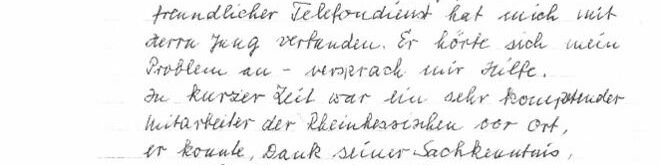 freundlicher Telefondienst hat mich mit
Herrn Jung verbunden. Er hörte sich mein
Problem an - versprach mir Hilfe.
In kurzer Zeit war ein sehr kompetender
Mitarbeiter der Rheinhessischen vor Ort,
er konnte, Dank seiner Sachkenntnis,